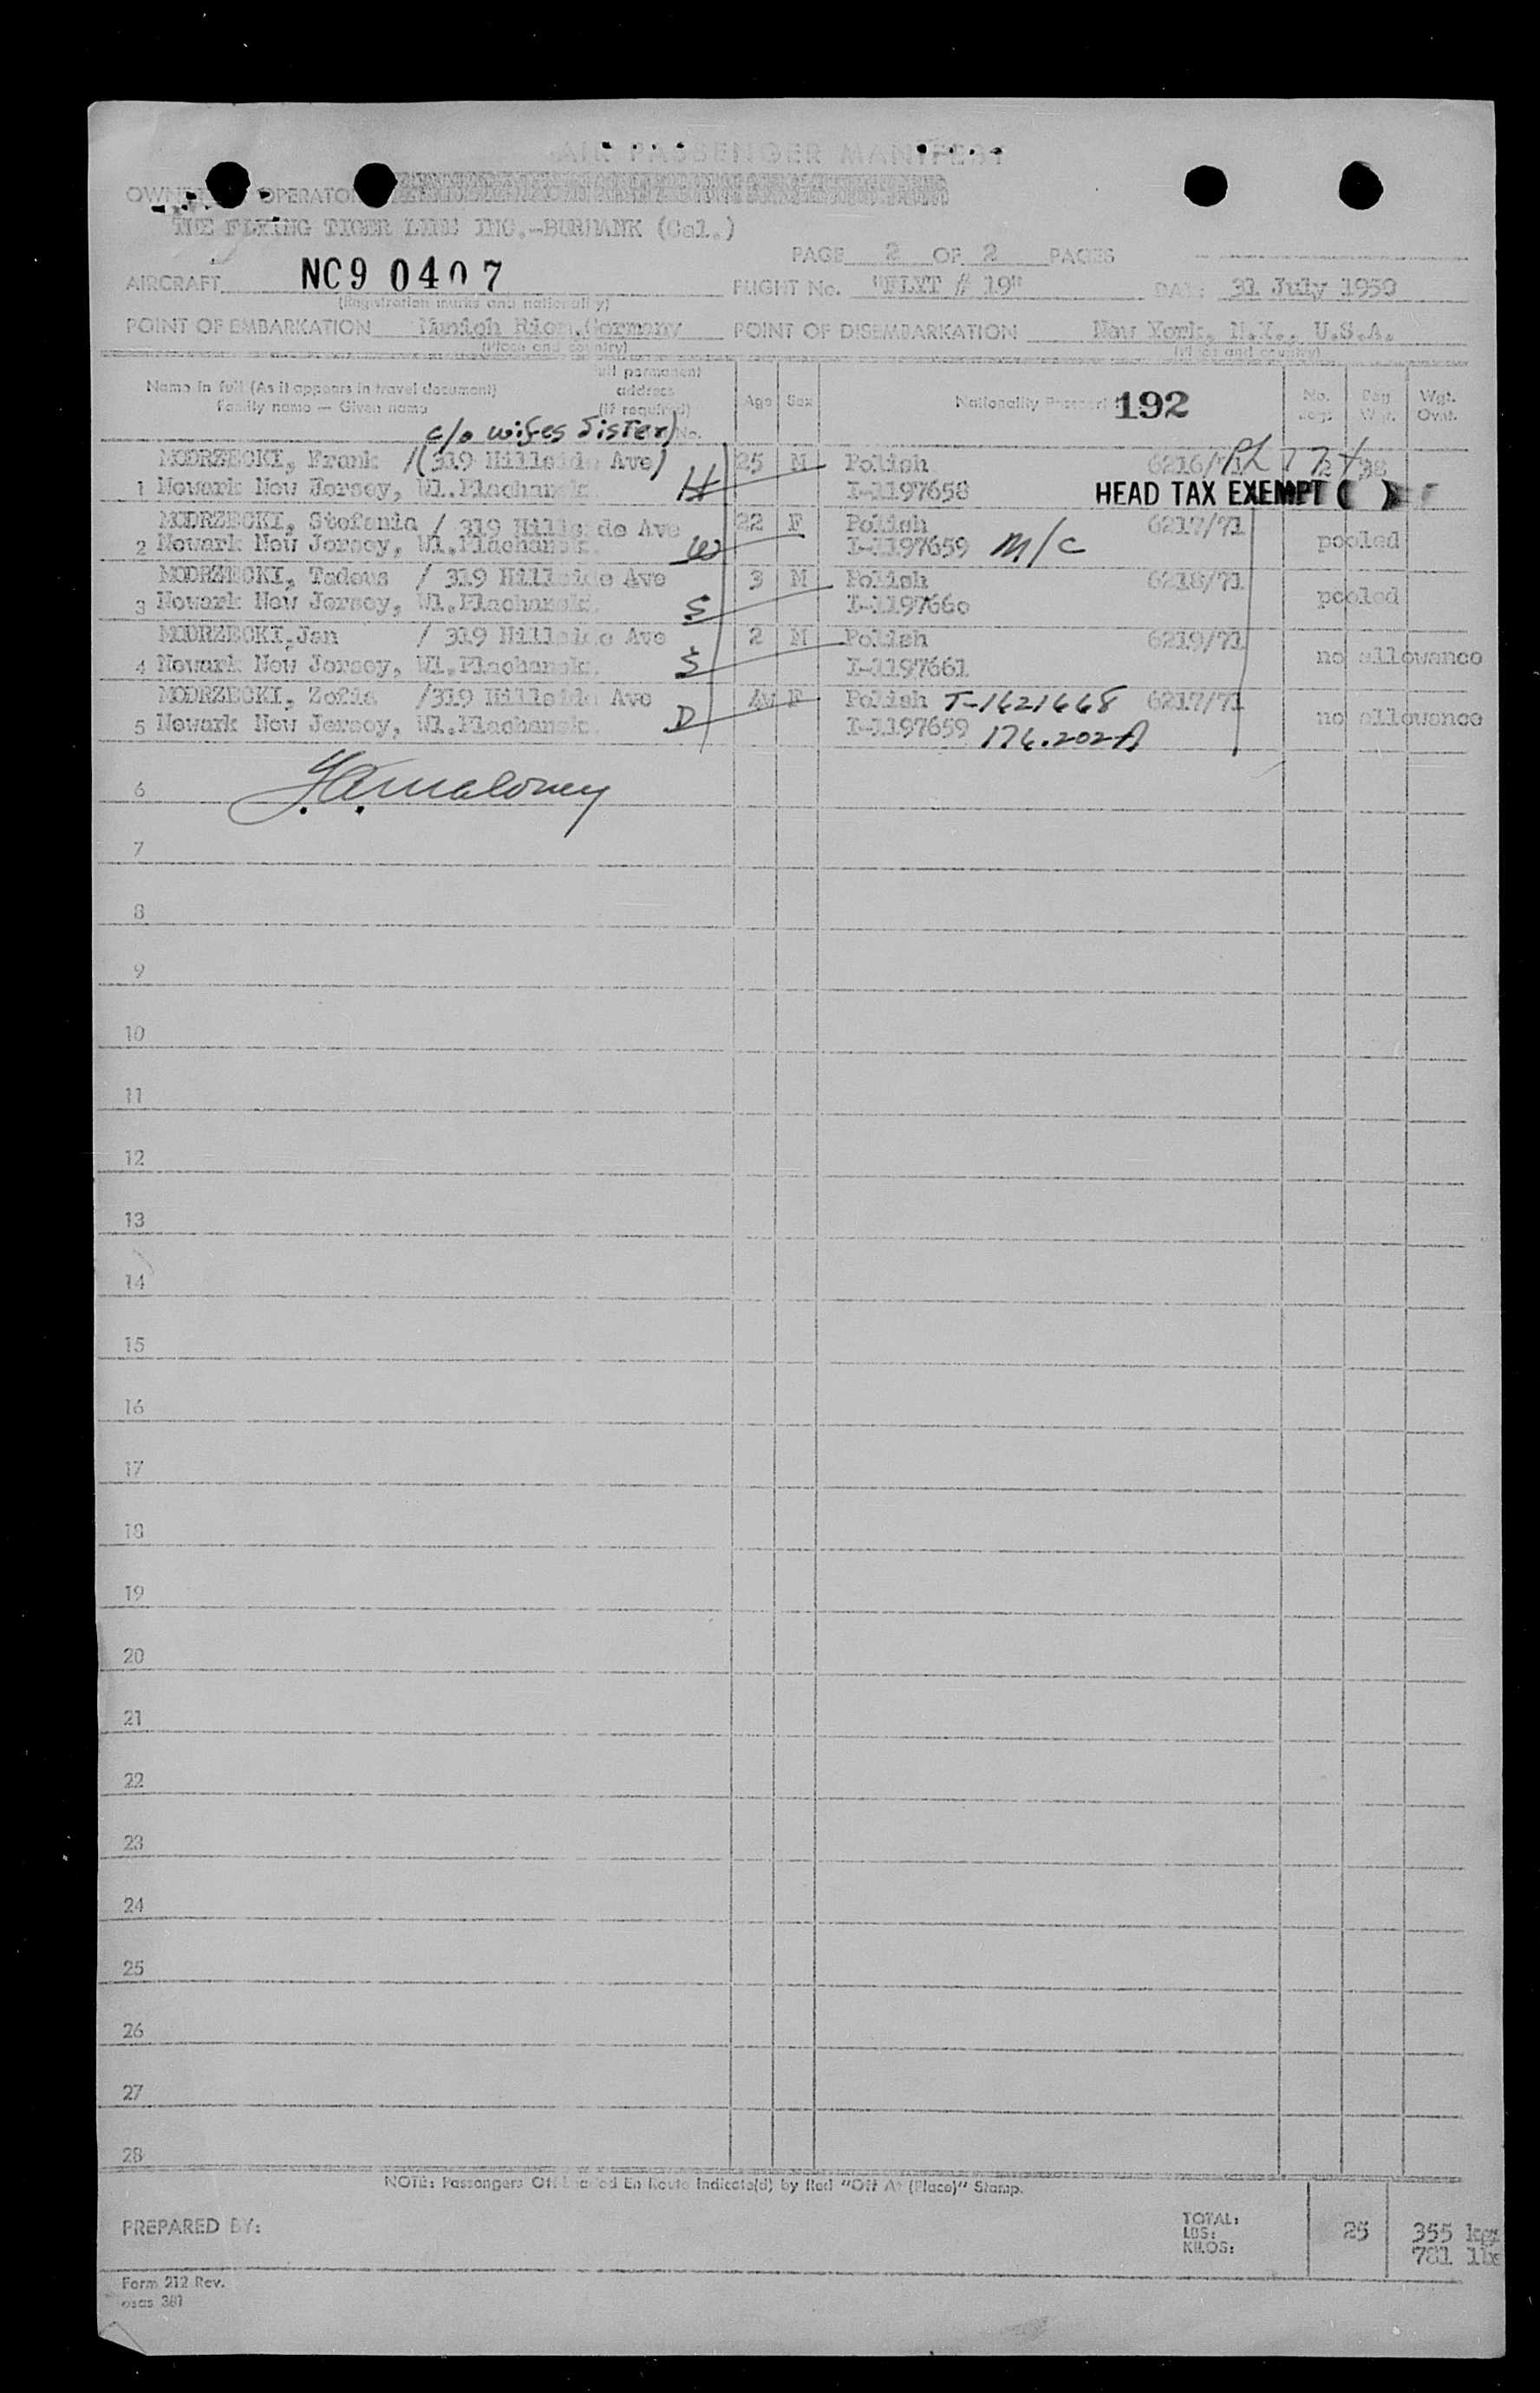 AIR PASSENGER MANIFEST
THE FLYING TIGER LINE INC.-BURBANK (Cal.)
PAGE 2 OF 2 PAGES
AIRCRAFT NC90407 FLIGHT No. "FLXT # 19" DATE: 31 July 1950
(Registration marks and nationality)
POINT OF EMBARKATION Munich Riem, Germany POINT OF DISEMBARKATION New York, N.Y., U.S.A.
(Place and country) (Place and country)
Name in full (As it appears in travel document)
Family name — Given name
Full permanent
address
(If required)
Age Sex Nationality Passport 192 No. Wgt.
c/o wifes sister)
MODRZECKI, Frank /(319 Hillside Ave) H 25 M Polish 6216/71
1 Newark New Jersey, I-1197658 HEAD TAX EXEMPT ( )
MODRZECKI, Stefania / 319 Hillside Ave 22 F Polish 6217/71
2 Newark New Jersey, W I-1197659 M/C pooled
MODRZECKI, Tadeus / 319 Hillside Ave 3 M Polish 6218/71
3 Newark New Jersey, S I-1197660 pooled
MODRZECKI, Jan / 319 Hillside Ave 2 M Polish 6219/71
4 Newark New Jersey, S I-1197661 no allowance
MODRZECKI, Zofia /319 Hillside Ave F Polish T-1621668 6217/71
5 Newark New Jersey, D I-1197659 176.202A no allowance
6 Maloney
7
8
9
10
11
12
13
14
15
16
17
18
19
20
21
22
23
24
25
26
27
28
NOTE: Passengers Off Loaded En Route Indicate(d) by Red "Off At (Place)" Stamp.
PREPARED BY:
TOTAL:
LBS:
KILOS:
25 355 kgs
781 lbs
Form 212 Rev.
osas 381